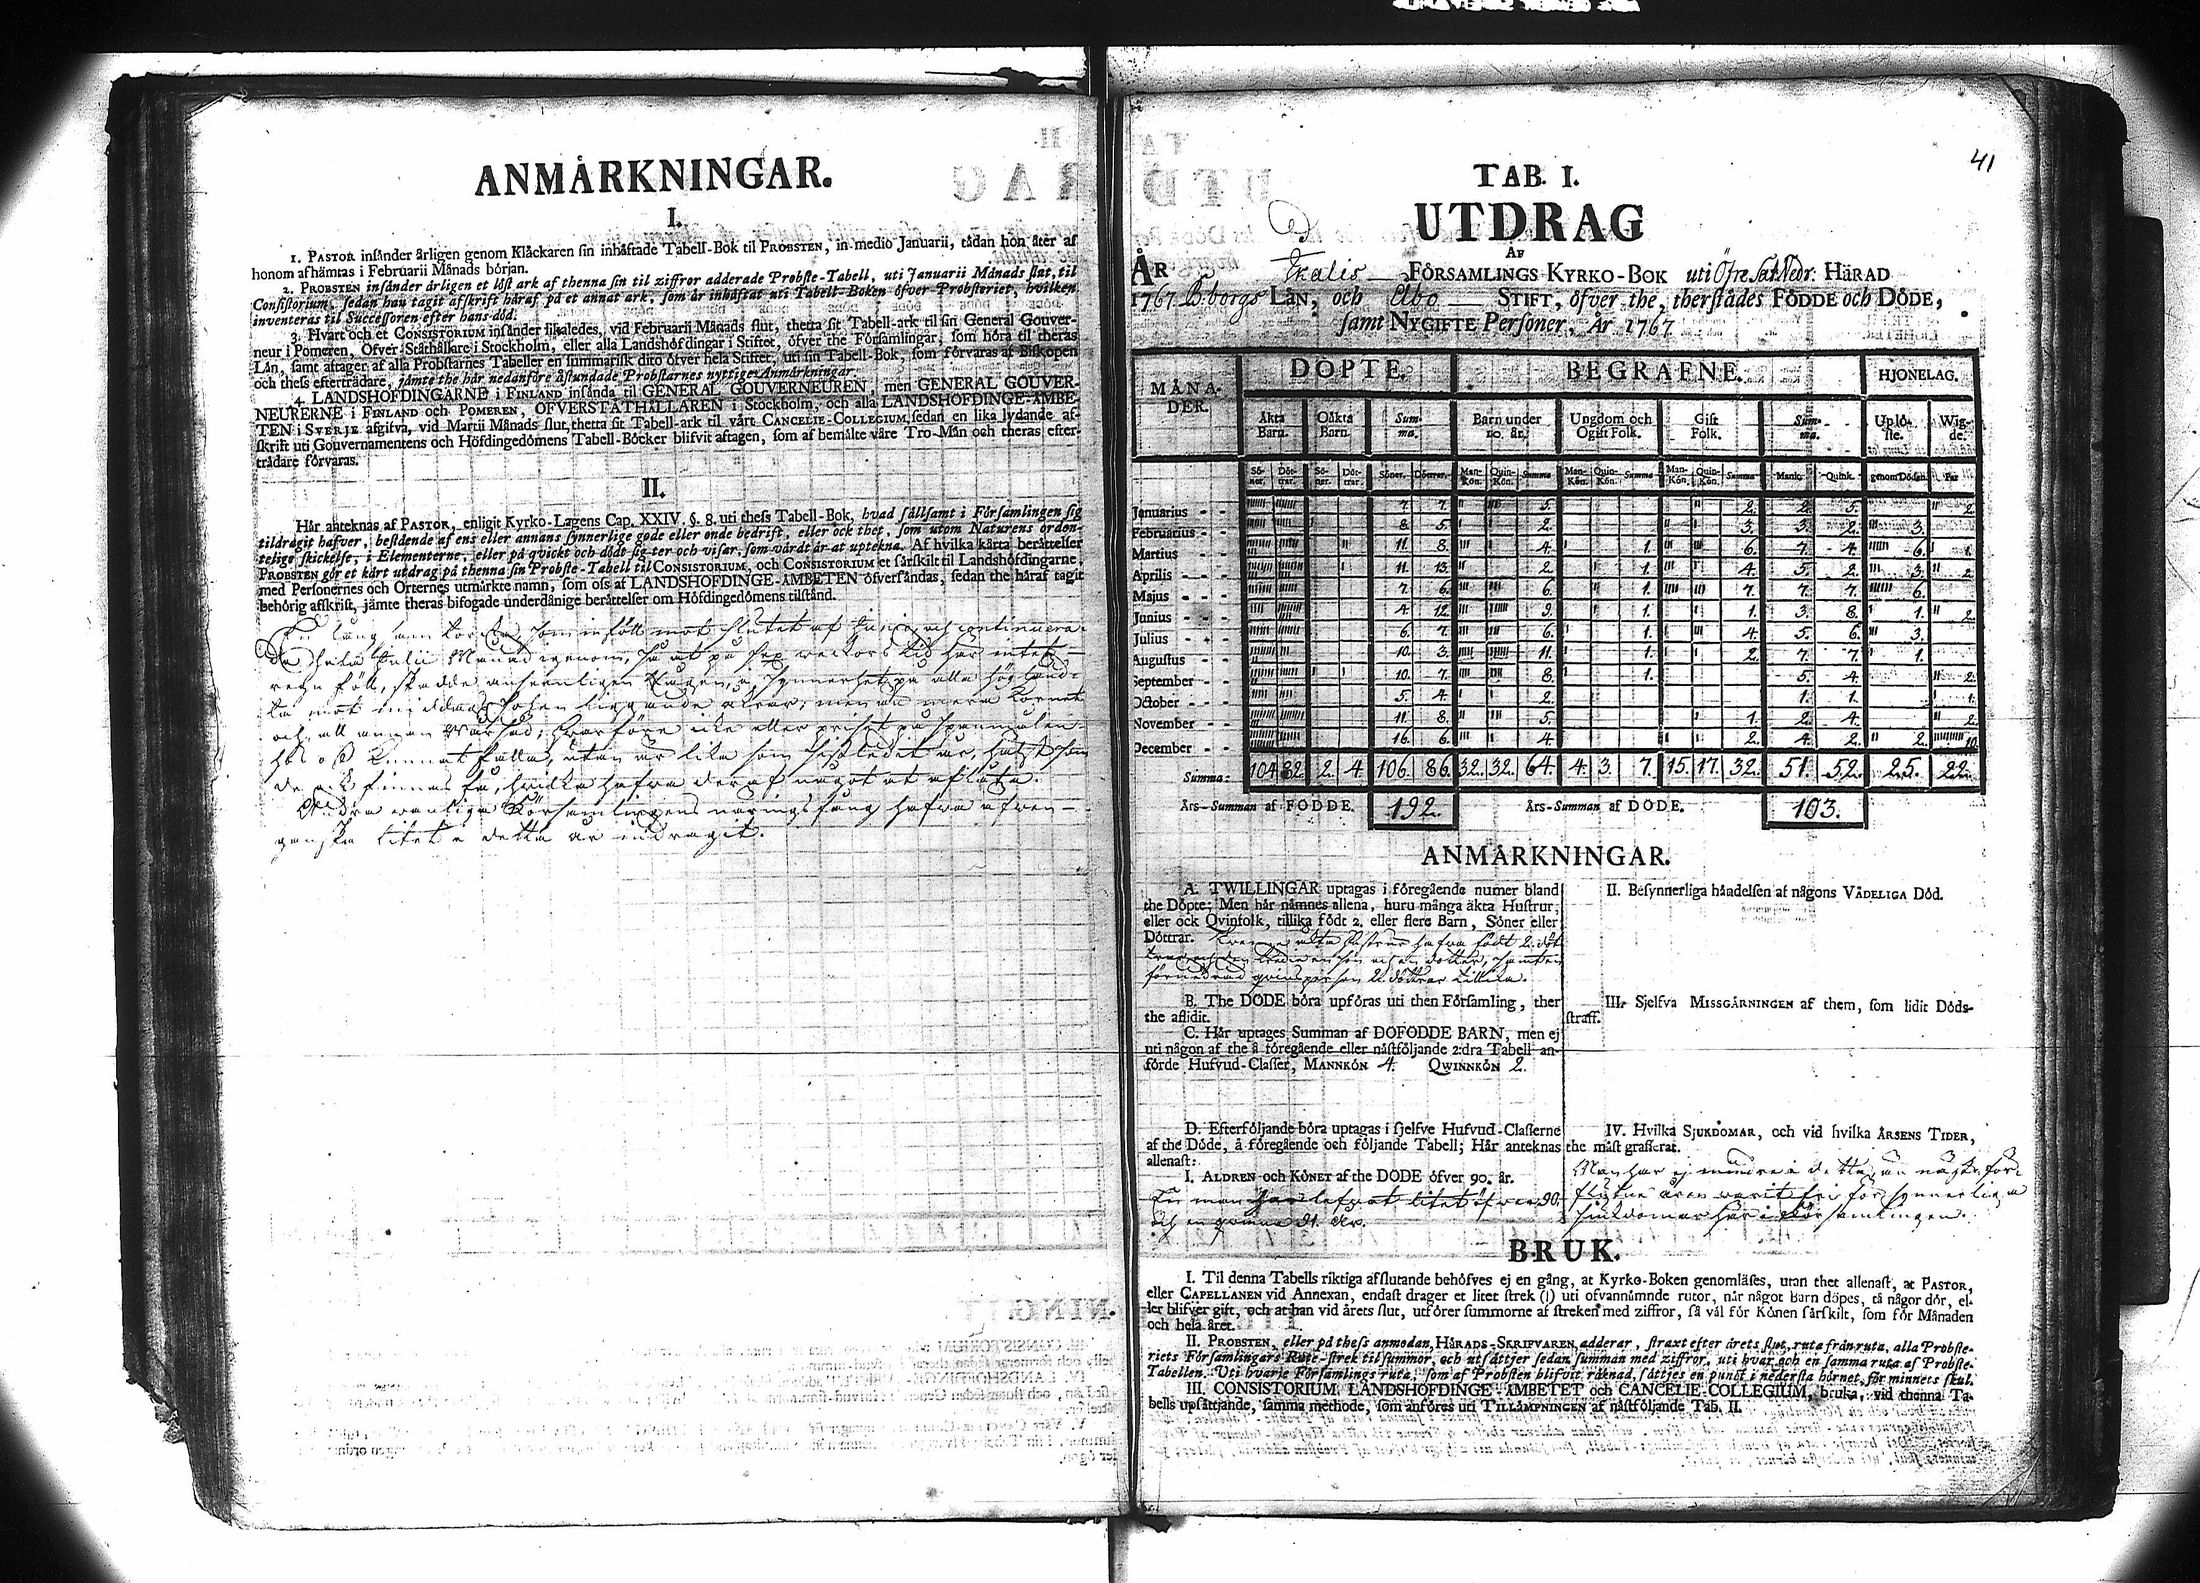 ANMÅRKNINGAR.
I.
1. PASTOR insånder årligen genom Klåckaren sin inhåftade Tabell-Bok til PROBSTEN, in medio Januarii, tådan hon åter af
honom afhåmtas i Februarii Månads början.
2. PROBSTEN insånder årligen et löst ark af thenna sin til ziffror adderade Probste-Tabell, uti Januarii Månads slut, til
Consistorium, sedan han tagit afskrift håraf på et annat ark, som år inhåftat uti Tabell-Boken öfver Probsteriet, hvilken
inventeras til Successoren efter hans död.
3. Hvart och et CONSISTORIUM insånder likaledes, vid Februarii Månads slut, thetta sit Tabell-ark til sin General Gouver-
neur i Pomeren, Öfver-Ståthållare i Stockholm, eller alla Landshöfdingar i Stiftet, öfver the Församlingar, som höra til theras
Lån, samt aftager af alla Probstarnes Tabeller en summarisk dito öfver hela Stiftet, uti sin Tabell-Bok, som förvaras af Biskopen
och thess eftertrådare, jämte the hår nedanföre åstundade Probstarnes nyttiga Anmårkningar.
4. LANDSHOFDINGARNE i FINLAND insånda til GENERAL GOUVERNEUREN, men GENERAL GOUVER-
NEURERNE i FINLAND och POMEREN, OFVERSTÅTHÅLLAREN i Stockholm, och alla LANDSHOFDINGE-ÅMBE-
TEN i SVERJE afgifva, vid Martii Månads slut, thetta sit Tabell-ark til vårt CANCELIE-COLLEGIUM, sedan en lika lydande af-
skrift uti Gouvernamentens och Höfdingedömens Tabell-Böcker blifvit aftagen, som af bemålte våre Tro-Mån och theras efter-
trådare förvaras.
II.
Hår anteknas af PASTOR, enligit Kyrko-Lagens Cap. XXIV. §. 8. uti thess Tabell-Bok, hvad sållsamt i Församlingen sig
tildragit hafver, bestående af ens eller annans synnerlige gode eller onde bedrift, eller ock thet, som utom Naturens orden-
telige skickelse, i Elementerne, eller på qvickt och dödt sig ter och visar, som vårdt år at uptekna. Af hvilka kårta beråttelser
PROBSTEN gör et kårt utdrag på thenna sin Probste-Tabell til CONSISTORIUM, och CONSISTORIUM et sårskilt til Landshöfdingarne,
med Personernes och Orternes utmårkte namn, som oss af LANDSHOFDINGE-ÅMBETEN öfversåndas, sedan the håraf tagit
behörig afskrift, jämte theras bifogade underdånige beråttelser om Höfdingedömens tilstånd.
En långsam torcka, som inföll mot slutet af Junii, och continuera-
de hela Julii Månad igenom, så at på sex weckors tid här intet
regn föll, skadde ansenligen Rågen, i synnerhet på alla högländ-
ta mot middags solen liggande åkrar; men än mera Kornet
och all annan Wårsäd; hwarföre icke eller priset på spannmålen
hos oss kunnat falla, utan är lika som sistledet år, hälst som
de ock finnas få, hwilka hafwa deraf något at aflåta.
Andra wanliga Församlingens näringsfång hafwa äfwen
ganska litet i detta år indragit.
41
TAB. I.
UTDRAG
AF
ÅR Ikalis FÖRSAMLINGS KYRKO-BOK uti Öfre Sat Nedr HÄRAD
1767. B.borgs LÄN, och Åbo STIFT, öfver the, therstådes FÖDDE och DÖDE,
samt NYGIFTE Personer, År 1767
MÅNA-DER. DÖPTE. BEGRAFNE. HJONELAG.
Åkta Barn. Oåkta Barn. Summa. Barn under 10. år. Ungdom och Ogift Folk. Gift Folk. Summa. Uplöste. Wigde.
Söner. Döttrar. Söner. Döttrar. Söner. Döttrar. Man-Kön. Quin-Kön. Summa Man-Kön. Quin-Kön. Summa Man-Kön. Quin-Kön. Summa Mank. Quink. genom Döden. Par
Januarius 7. 7. 5. 2. 2. 5. 2.
Februarius 8. 5. 2. 3. 3. 2. 3.
Martius 11. 8. 4. 1. 6. 7. 4. 6. 1.
Aprilis 11. 13. 2. 1. 4. 5. 2. 3. 2.
Majus 7. 6. 6. 1. 7. 7. 7. 6.
Junius 4. 12. 9. 1. 1. 3. 8. 1. 2.
Julius 6. 7. 6. 1. 4. 5. 6. 3.
Augustus 10. 3. 11. 1. 2. 7. 7. 1.
September 10. 7. 8. 1. 5. 4. 2.
October 5. 4. 2. 1. 1. 1.
November 11. 8. 5. 1. 2. 4. 2.
December 16. 6. 4. 2. 4. 2. 2. 10.
Summa: 104. 82. 2. 4. 106. 86. 32. 32. 64. 4. 3. 7. 15. 17. 32. 51. 52. 25. 22.
Års-Summan af FÖDDE. 192. Års-Summan af DÖDE. 103.
ANMÄRKNINGAR.
A. TWILLINGAR uptagas i föregående numer bland
the Döpte: Men hår nåmnes allena, huru många åkta Hustrur,
eller ock Qvinfolk, tillika födt 2. eller flere Barn, Söner eller
Döttrar. Twenne äkta Hustrur hafwa födt 2. döt
trar och den tredie en son och en dotter, samt en
förnedrad qwinsperson 2. döttrar tillika.
B. The DÖDE böra upföras uti then Församling, ther
the aflidit.
C. Hår uptages Summan af DÖFÖDDE BARN, men ej
uti någon af the å föregående eller nåstföljande 2:dra Tabell an-
förde Hufvud-Classer, MANNKÖN 4. QWINNKÖN 2.
D. Efterföljande böra uptagas i sjelfve Hufvud-Classerne
af the Döde, å föregående och följande Tabell; Hår anteknas
allenast:
I. ÅLDREN och KÖNET af the DÖDE öfver 90. år.
En man har lefwat litet öfwer 90,
och en qwinna 91. år.
II. Besynnerliga håndelsen af någons VÅDELIGA Död.
III. Sjelfva MISSGÅRNINGEN af them, som lidit Döds-
straff.
IV. Hvilka SJUKDOMAR, och vid hvilka ÅRSENS TIDER,
the måst grasserat.
Man har ej mindre i detta, än näst för-
flutne åren warit fri för synnerliga
sjukdomar här i Församlingen.
BRUK.
I. Til denna Tabells riktiga afslutande behöfves ej en gång, at Kyrko-Boken genomlåses, utan thet allenast, at PASTOR,
eller CAPELLANEN vid Annexan, endast drager et litet strek (|) uti ofvannåmnde rutor, når något Barn döpes, tå någor dör, el-
ler blifver gift, och at han vid årets slut, utförer summorne af streken med ziffror, så vål för Könen sårskilt, som för Månaden
och hela året.
II. PROBSTEN, eller på thess anmodan, HÄRADS-SKRIFVAREN, adderar, straxt efter årets slut, ruta från ruta, alla Probste-
riets Församlingars Rute-strek til summor, och utsåttjer sedan summan med ziffror, uti hvar och en samma ruta af Probste-
Tabellen. Uti hvarje Församlings ruta, som af Probsten blifvit råknad, såttjes en punct i nedersta hörnet, för minnets skul.
III. CONSISTORIUM, LANDSHÖFDINGE-ÅMBETET och CANCELIE-COLLEGIUM, bruka, vid thenna Ta-
bells upsåttjande, samma methode, som anföres uti TILLÅMPNINGEN af nåstföljande Tab. II.